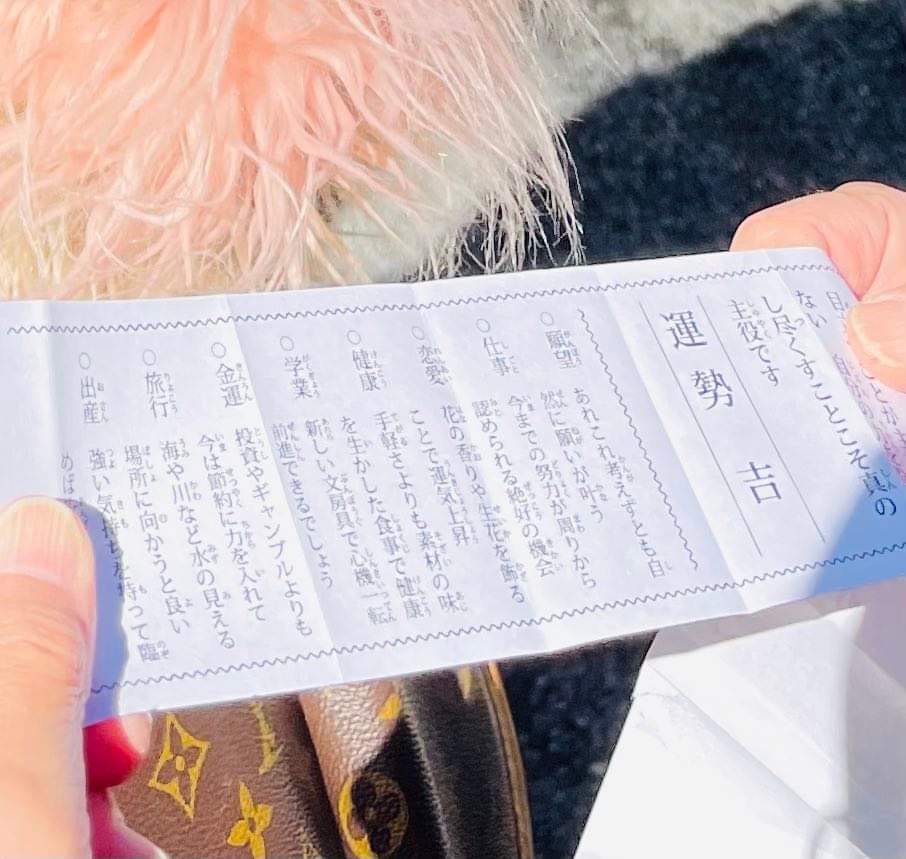 ない
し尽くすことこそ真の
主役です
運勢 吉
○願望 あれこれ考えずとも自
然に願いが叶う
○仕事 今までの努力が周りから
認められる絶好の機会
○恋愛 花の香りや生花を飾る
ことで運気上昇
○健康 手軽さよりも素材の味
を生かした食事で健康
○学業 新しい文房具で心機一転
前進できるでしょう
○金運 投資やギャンブルよりも
今は節約に力を入れて
○旅行 海や川など水の見える
場所に向かうと良い
○出産 強い気持ちを持って臨
めば